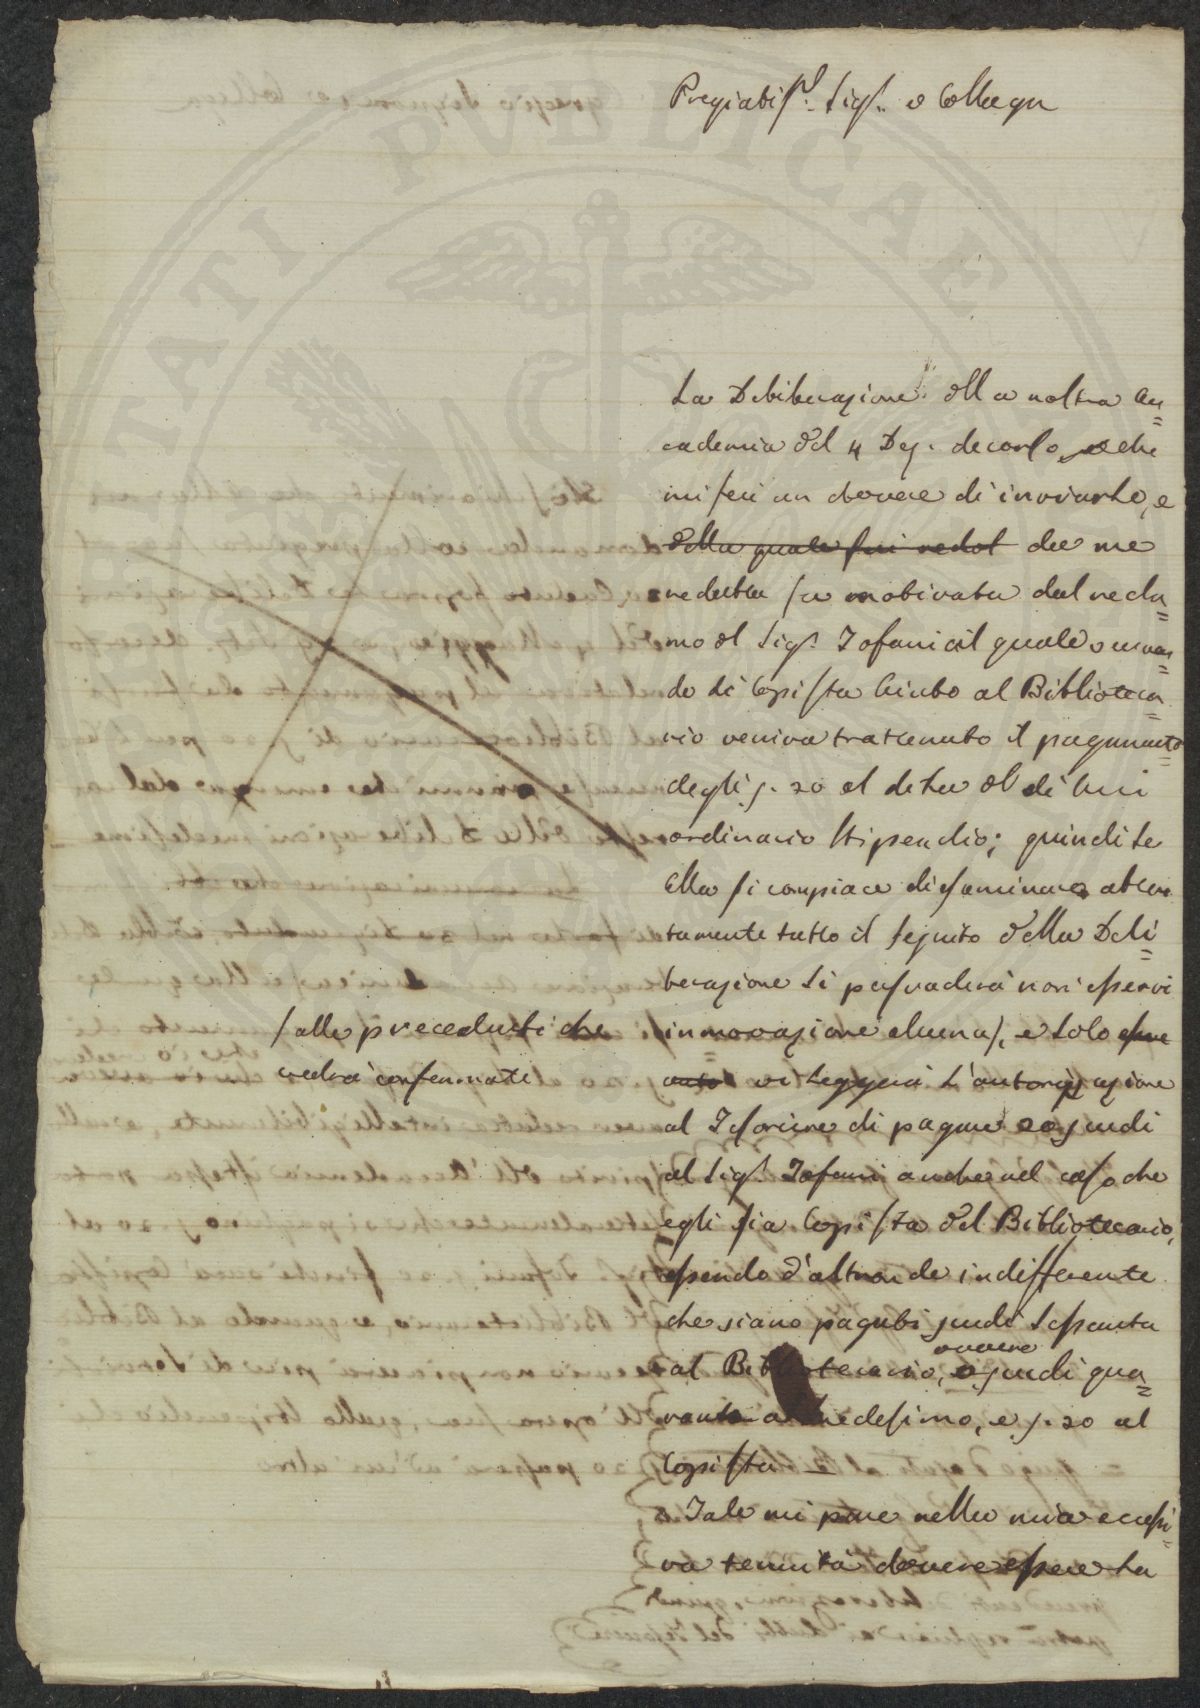 Pregiabiss. Sigr. e Collega
La Deliberazione della nostra Ac=
cademia del 4 Dez. decorso, che
mi feci un dovere di inviarle, e
della quale fui redat da me
redatta fu motivata dal recla=
mo del Sigr. Tofani il quale osservan=
do di Copista Aiuto al Biblioteca=
rio veniva trattenuto il pagamento=
degli z. 20 al di lui
ordinario Stipendio; quindi se
Ella si compiace di esaminare atten
tamente tutto il seguito della Deli=
berazione si persuaderà non esservi
innovazione alcuna, e solo
/alle precedenti che
vedrà confermate
vi leggerà l'autorizzazione
al Tesoriere di pagare 20 scudi
al Sigr. Tofani anche nel caso che
egli sia Copista del Bibliotecario,
essendo d'altronde indifferente
che siano pagati scudi Sessanta
al Bibliotecario, ovvero scudi qua=
ranta al medesimo, e z. 20 al
Copista
Tale mi pare nella mia eccessi=
va tenuità dovere essere la
PUBLICAE